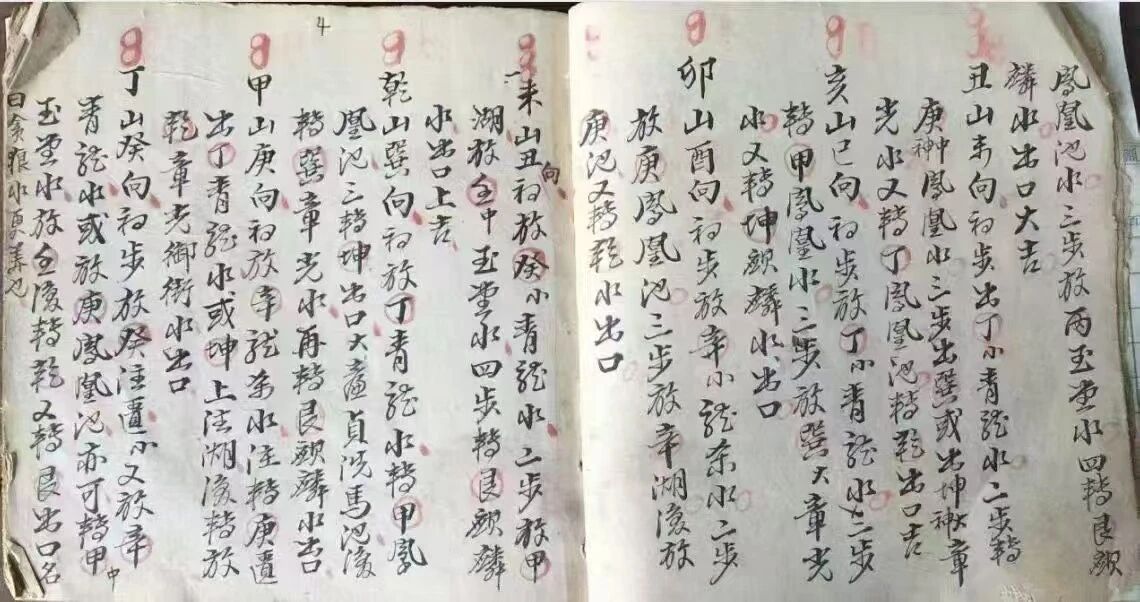 鳳凰池水三步放丙玉堂水四轉艮頭
麟水出口大吉
丑山未向初步出丁小青龍水二步轉
庚神鳳凰水三步出巽或出坤神大章
光水又轉丁鳳凰池轉乾出口吉
亥山巳向初步放丁小青龍水二步
轉甲鳳凰水三步放巽大章光
水又轉坤頭麟水出口
卯山酉向初步放辛小龍水二步
放庚鳳凰池三步放辛湖後放
庚池又轉乾水出口
未山丑向初放癸小青龍水二步放甲
湖放壬中玉堂水四步轉艮頭麟
水出口上吉
乾山巽向初放丁青龍水轉甲鳳
凰池三轉坤出口大貞洗馬池後
轉巽章光水再轉艮頭麟水出口
甲山庚向初放辛龍水注轉庚
出丁青龍水或坤上注湖後轉放
乾章光御街水出口
丁山癸向初步放癸注水又放辛
青龍水或放庚鳳凰池亦可轉甲中
玉堂水放壬後轉乾又轉艮出口名
曰貪狼水
4